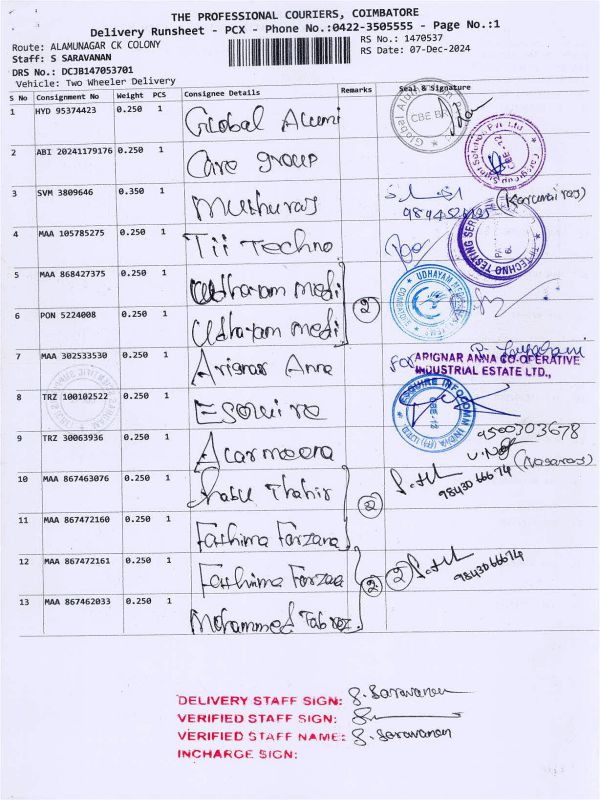 THE PROFESSIONAL COURIERS, COIMBATORE
Delivery Runsheet - PCX - Phone No.:0422-3505555 - Page No.:1
Route: ALAMUNAGAR CK COLONY
RS No.: 1470537
Staff: S SARAVANAN
RS Date: 07-Dec-2024
DRS No.: DCJB147053701
Vehicle: Two Wheeler Delivery
S No Consignment No Weight PCS Consignee Details Remarks Seal & Signature
1 HYD 95374423 0.250 1 Global Alumi
2 ABI 20241179176 0.250 1 Care group
3 SVM 3809646 0.350 1 Muthuraj
(Karunairaj)
4 MAA 105785275 0.250 1 Tii Techno
5 MAA 868427375 0.250 1 Udhayam medi
2
6 PON 5224008 0.250 1 Udhayam medi
7 MAA 302533530 0.250 1 Arignar Anna
For ARIGNAR ANNA CO-OPERATIVE
INDUSTRIAL ESTATE LTD.,
8 TRZ 100102522 0.250 1 Esquire
9 TRZ 30063936 0.250 1 Acarmeena
9500703678
10 MAA 867463076 0.250 1 Thahir
2
9843066674
11 MAA 867472160 0.250 1 Fathima Farzana
12 MAA 867472161 0.250 1 Fathima Farzaa
2 2
9843066674
13 MAA 867462033 0.250 1 Mohammed Tabrez
DELIVERY STAFF SIGN: S. Saravanan
VERIFIED STAFF SIGN:
VERIFIED STAFF NAME: S. Saravanan
INCHARGE SIGN: